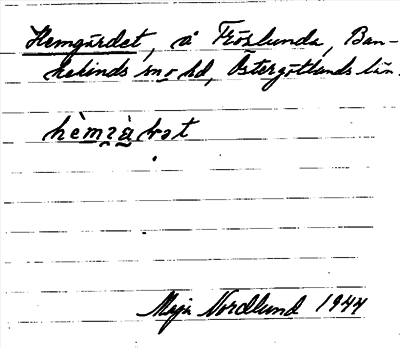 Hemgärdet, å Fröslunda, Ban-
kekinds sn o hd, Östergötlands län.
Maja Nordlund 1944